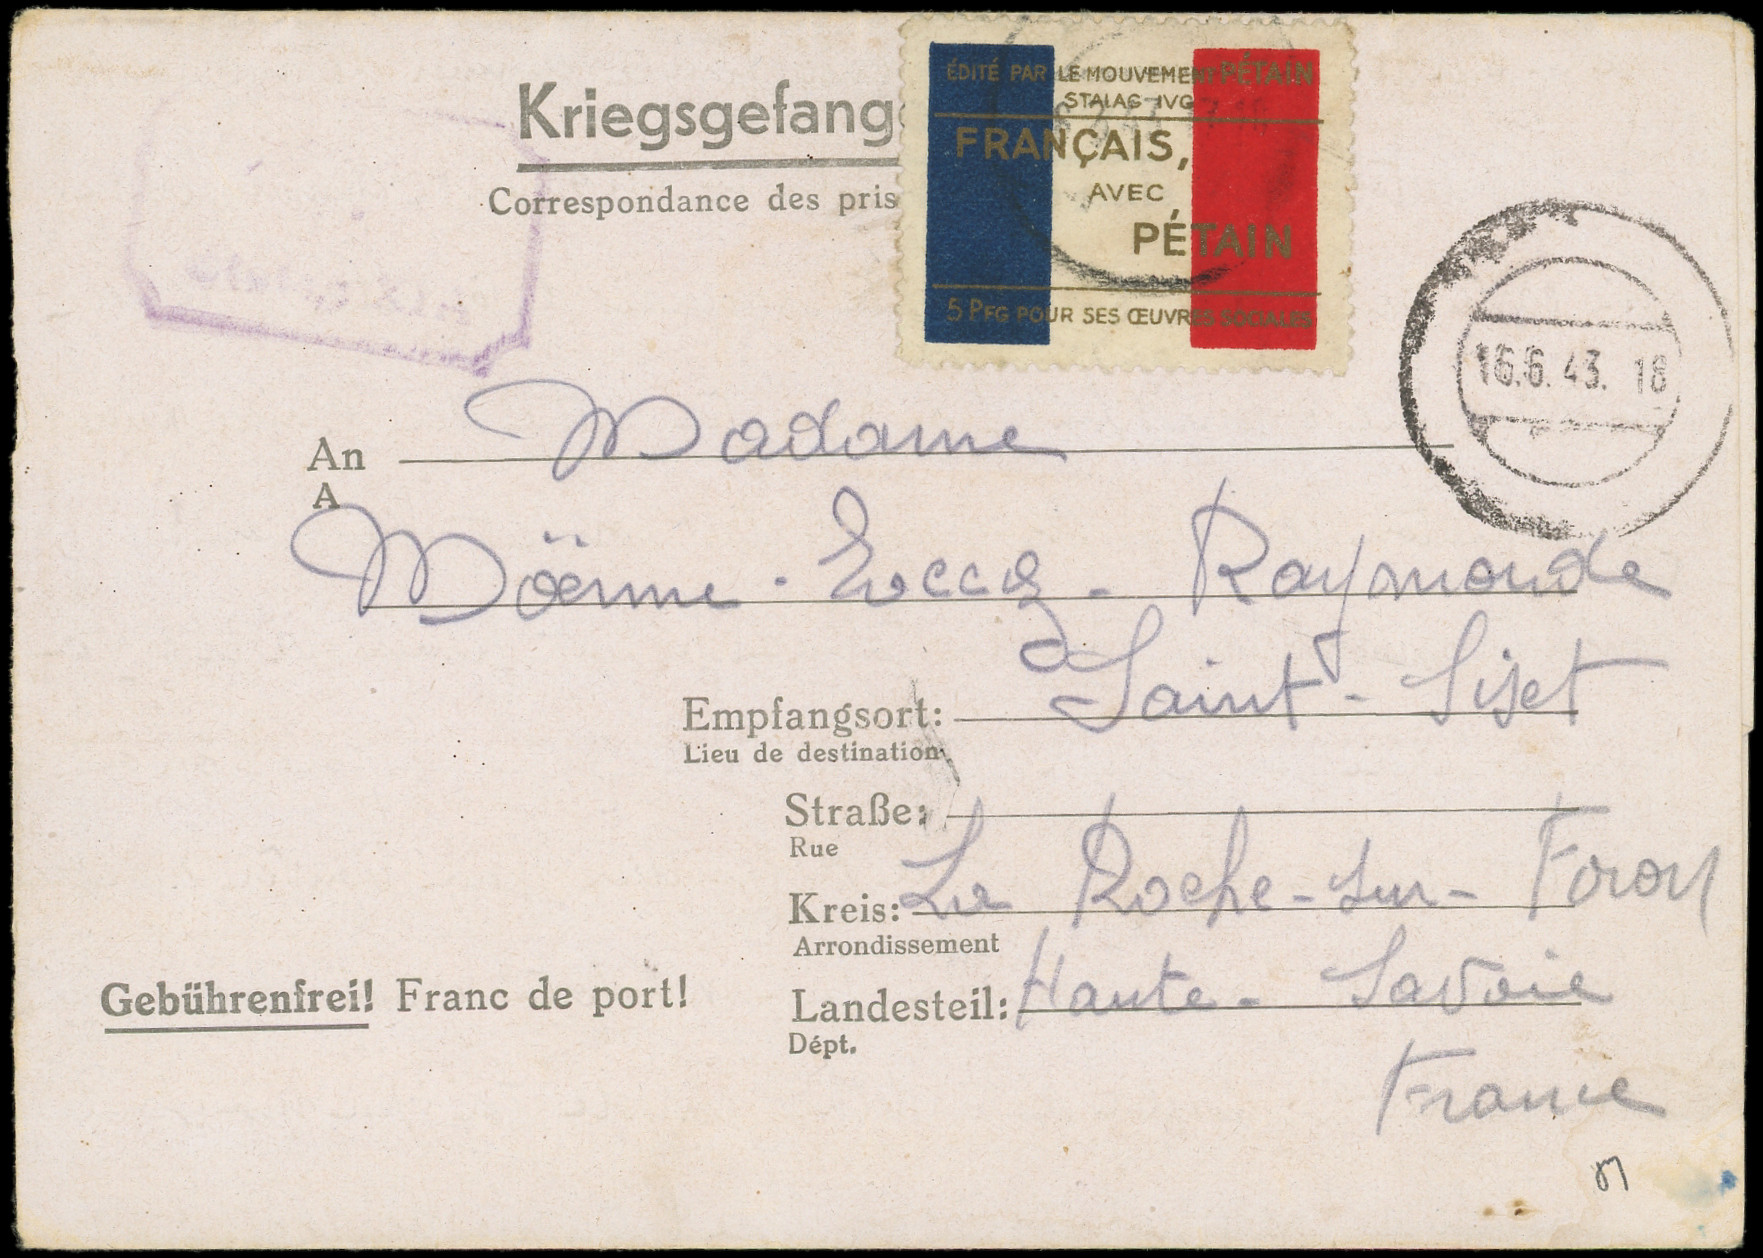 Kriegsgefang
Correspondance des pris
ÉDITÉ PAR LE MOUVEMENT PÉTAIN
STALAG IVG
FRANÇAIS,
AVEC
PÉTAIN
5 PFG POUR SES ŒUVRES SOCIALES
16.6.43. 18
An Madame
A
Raymonde
Empfangsort: Saint-Sixt
Lieu de destination
Straße:
Rue
Kreis: La Roche-sur-Foron
Arrondissement
Gebührenfrei! Franc de port!
Landesteil: Haute-Savoie
Dépt.
France